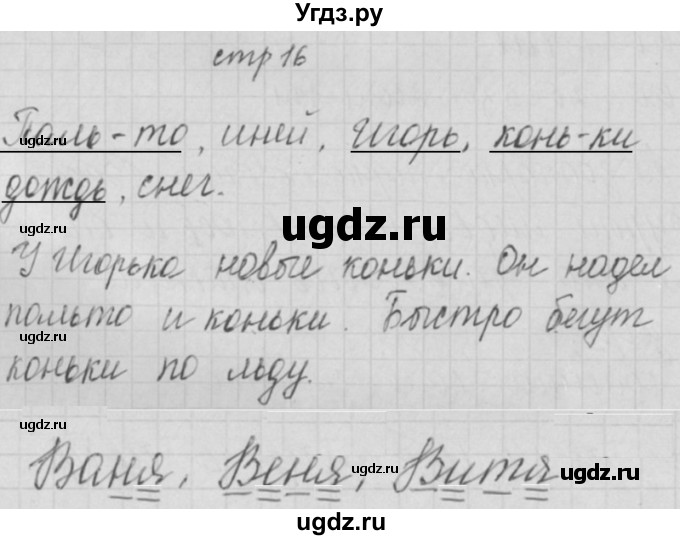 Угдз.ру
стр 16
Паль-то, иней, Игорь, конь-ки
дождь, снег.
ugdz.ru
ugdz.ru
ugdz.ru
У Игорька новые коньки. Он надел
пальто и коньки. Быстро бегут
ugdz.ru
коньки по льду.
ugdz.ru
ugdz.ru
ugdz.ru
Ваня, Веня, Витя
ugdz.ru